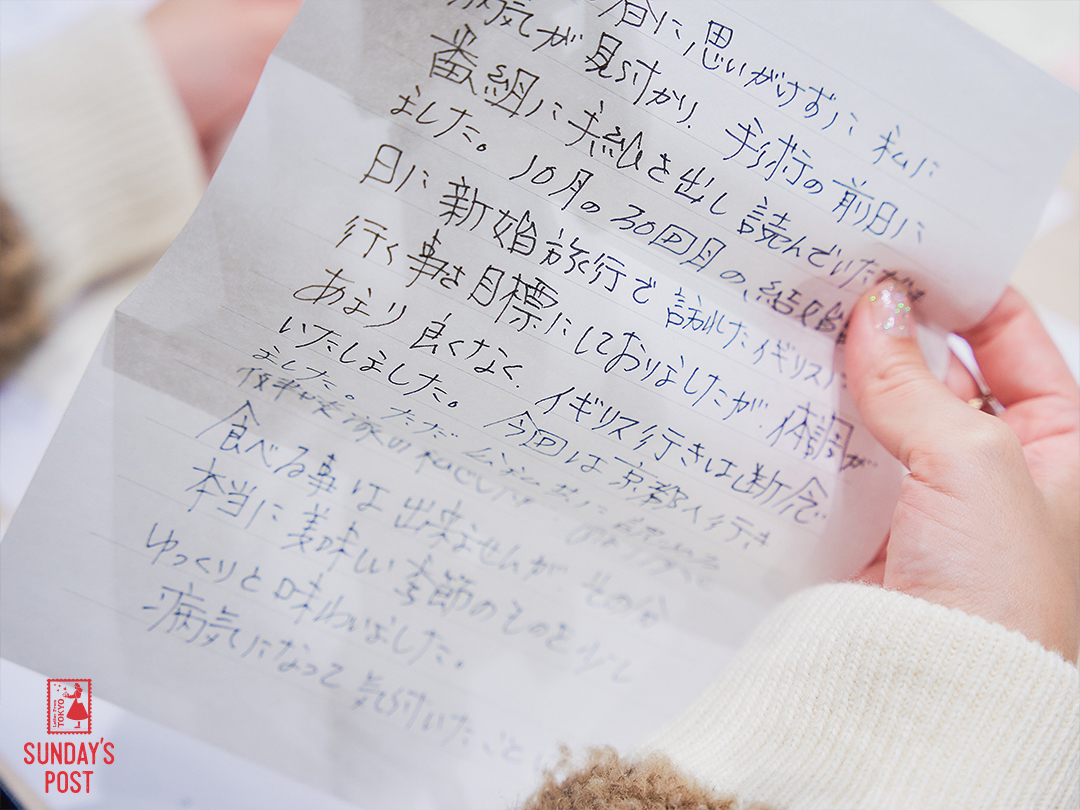 に思いがけずに私に
病気が見つかり、手術の前日に
番組に手紙を出し読んでいただき
ました。10月の30回目の、結婚
日に新婚旅行で訪れたイギリスに
行く事を目標にしておりましたが、体調が
あまり良くなく、イギリス行きは断念
いたしました。今回は京都へ行き
ました。ただ
食べる事は出来ませんが その分
本当に美味しい季節のものを少し
ゆっくりと味わいました。
病気になって 気付いたこと
Letter From
TOKYO
SUNDAY'S
POST